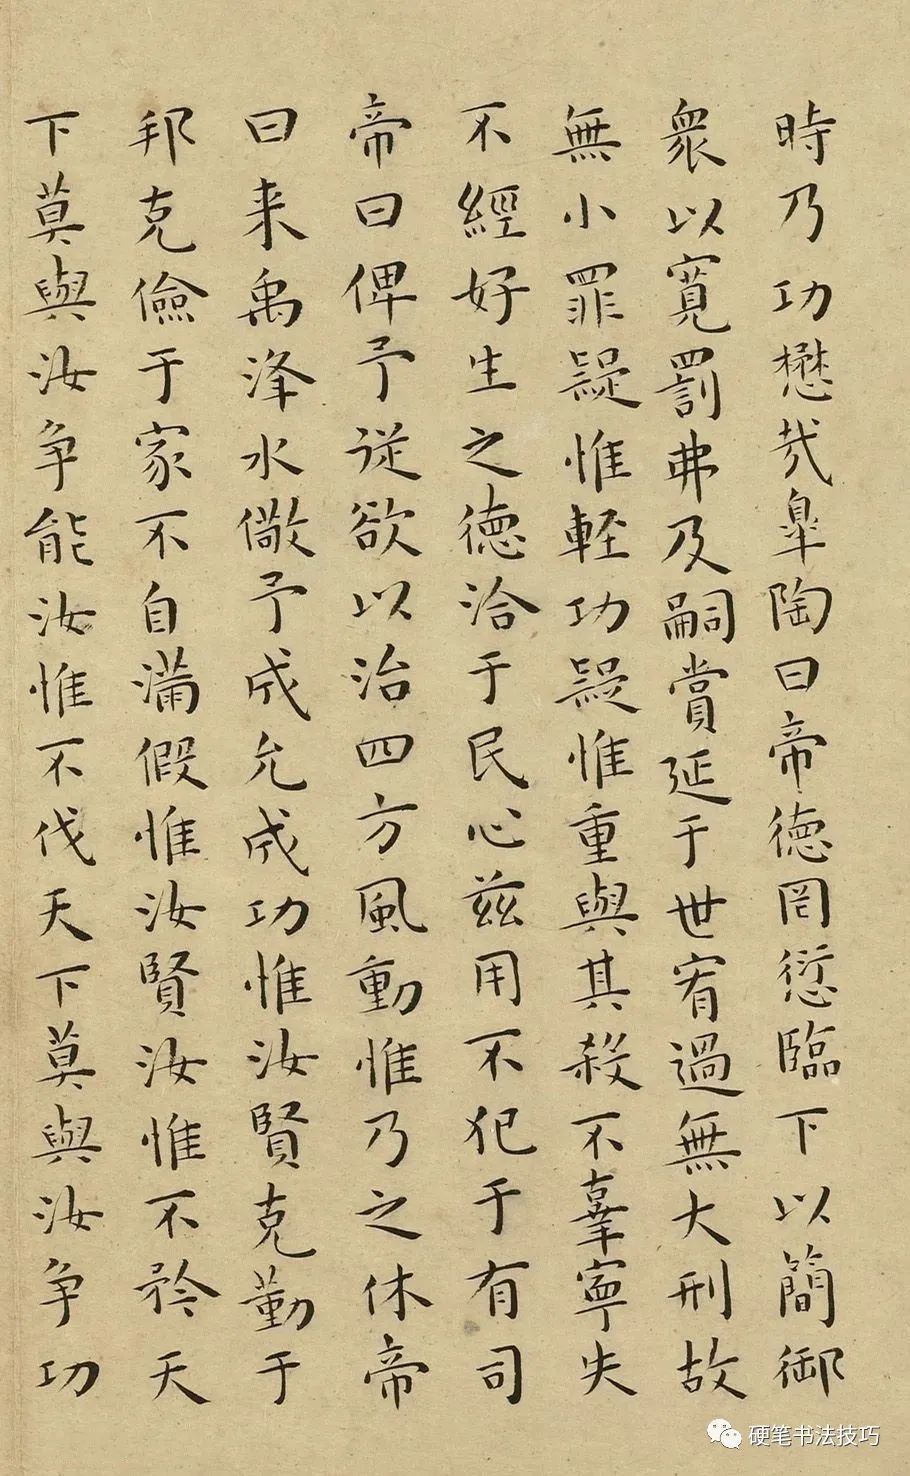 時乃功懋哉皐陶曰帝德罔愆臨下以簡御
衆以寬罰弗及嗣賞延于世宥過無大刑故
無小罪疑惟輕功疑惟重與其殺不辜寧失
不經好生之德洽于民心兹用不犯于有司
帝曰俾予從欲以治四方風動惟乃之休帝
曰来禹洚水儆予成允成功惟汝賢克勤于
邦克儉于家不自滿假惟汝賢汝惟不矜天
下莫與汝争能汝惟不伐天下莫與汝争功
硬笔书法技巧